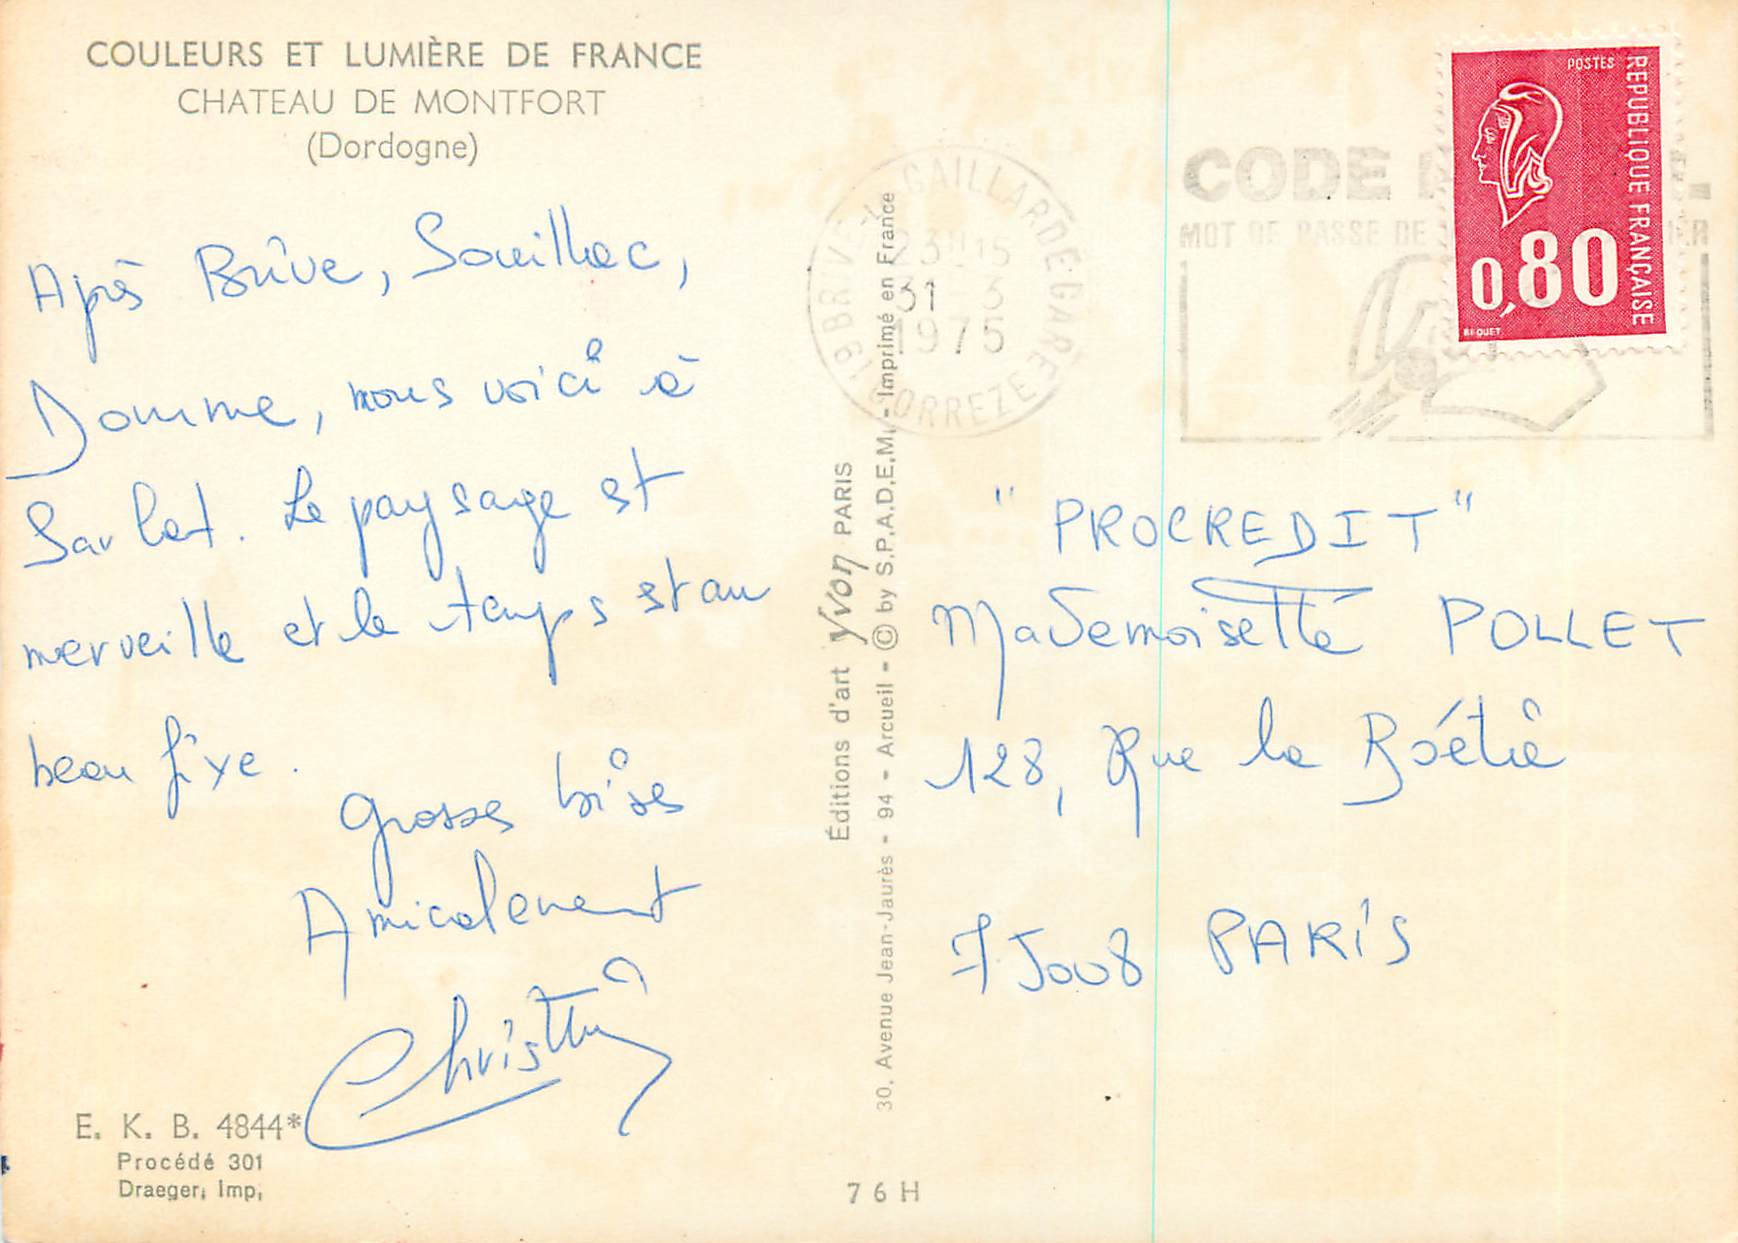 COULEURS ET LUMIÈRE DE FRANCE
CHATEAU DE MONTFORT
(Dordogne)
Après Brive, Souillac,
Domme, nous voici à
Sarlat. Le paysage est
merveille et le temps est au
beau fixe.
Grosses bises
Amicalement
E. K. B. 4844*
Procédé 301
Draeger, Imp,
76H
Éditions d'art Yvon PARIS
30, Avenue Jean-Jaurès - 94 - Arcueil - © by S.P.A.D.E.M. - Imprimé en France
19 BRIVE-LA-GAILLARDE-GARE
23H15
31-3
1975
CORREZE
CODE
MOT DE PASSE DE
POSTES
REPUBLIQUE FRANÇAISE
0,80
BEQUET
"PROCREDIT"
Mademoiselle POLLET
128, Rue la Boétie
75008 PARIS